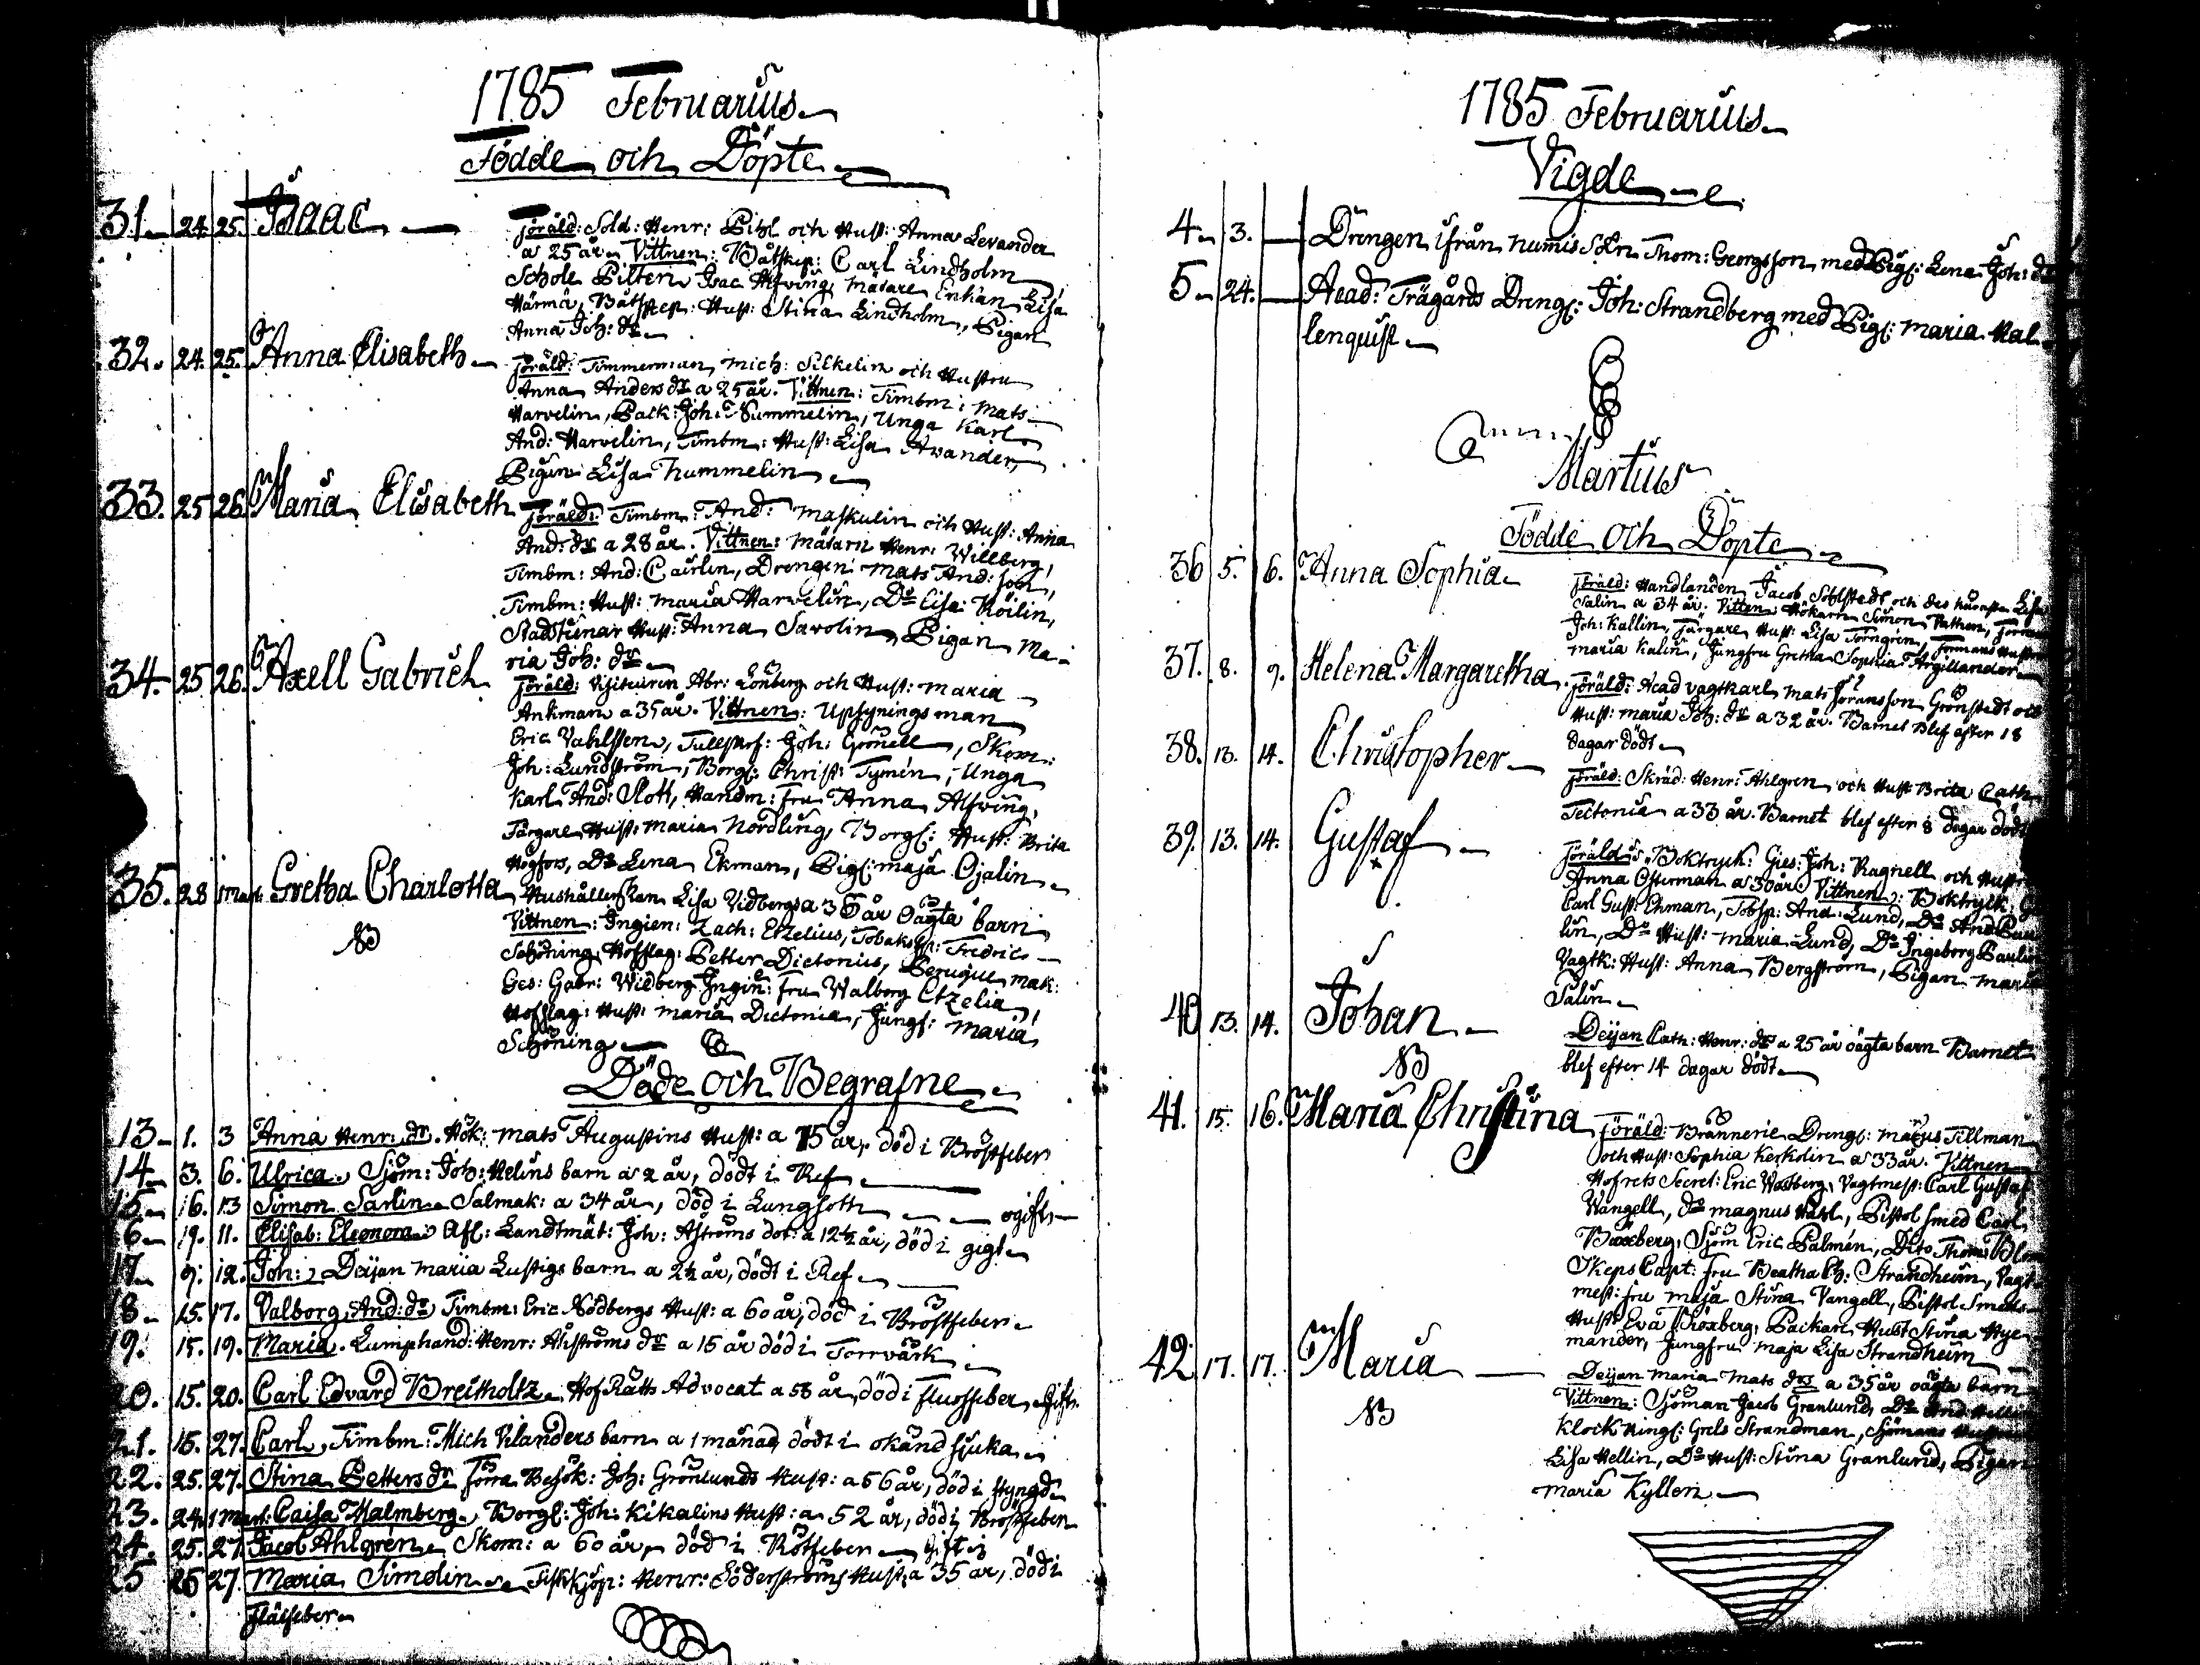 1785 Februarius
Födde och Döpte
31. 24. 25. Isaac
Föräld: Sold: Henr: Pihl och Hust: Anna Levander
a 25 år. Vittnen: Båtskep: Carl Lindholm
Schole Pilten Isac Alfving, Målare Enkan Lisa
Härmä, Båtskep: Hust: Stina Lindholm, Pigan
Anna Joh: dr
32. 24. 25. Anna Elisabeth
Föräld: Timmerman Mich: Silkelin och Hustru
Anna Anders dr a 25 år. Vittnen: Timbm: Mats
Harvelin, Pack: Joh: Nummelin, Unga Karl
And: Harvelin, Timbm: Hust: Lisa Avander,
Pigan Lisa Nummelin
33. 25 26. Maria Elisabeth
Föräld: Timbm: And: Maskulin och Hust: Anna
And: dr a 28 år. Vittnen: Målarn Henr: Willberg,
Timbm: And: Cairlin, Drengen Mats And: son,
Timbm: Hust: Maria Harvelin, Do Lisa Röilin,
Stadstienar Hust: Anna Savolin, Pigan Ma-
ria Joh: dr
34. 25 26. Axell Gabriel
Föräld: Visiteuren Abr: Lönberg och Hust: Maria
Ankman a 35 år. Vittnen: Upsynings man
Eric Vahlsten, Joh: Grönell, Skom:
Joh: Lundström, Borgs: Christ: Tymén, Unga
Karl And: Slott, Handm: Fru Anna Alfving,
Färgare Hust: Maria Nordling, Borgs: Hust: Brita
Högfors, Do Lena Ekman, Pigs: Maja Ojalin
35. 28 1 Mart: Gretha Charlotta
NB
Hushållerskan Lisa Vidbergs a 36 år oägta barn
Vittnen: Ingien: Zach: Etzelius, Tobaks Fredric
Schöning, Hofslag: Petter Dictonius, Peruque mak:
Ges: Gabr: Widberg Ingin: Fru Walborg Etzelia,
Hofslag: Hust: Maria Dictonia, Jungf: Maria
Schöning
Döde och Begrafne
13. 1. 3 Anna Henr: dr. Hök: Mats Augustins Hust: a 75 år, död i Bröstfeber
14. 3. 6. Ulrica Sjöm: Joh: Helins barn a 2 år, dödt i Ref
15. 6. 13 Simon Sarlin Salmak: a 34 år, död i Lungsott ogift
6. 9. 11. Elisab: Eleonora Afl: Landtmät: Joh: Aströms dot: a 12½ år, död i gigt
17. 9. 12. Joh: Deijan Maria Lustigs barn a 2½ år, dödt i Ref
18. 15. 17. Valborg And: dr Timbm: Eric Nödbergs Hust: a 60 år, död i Bröstfeber
19. 15. 19. Maria Lumphand: Henr: Ahlströms dr a 15 år död i Torrvärk
20. 15. 20. Carl Edvard Breitholtz Hof Rätts Advocat a 58 år, död i Flussfeber, gift
21. 15. 27. Carl, Timbm: Mich Velanders barn a 1 månad dödt i okänd sjuka
22. 25. 27. Stina Petters dr Förra Besök: Joh: Grönlunds Hust: a 56 år, död i styngd
23. 24. 1 Mart: Caisa Malmberg Borgs: Joh: Kikalins Hust: a 52 år, död i Bröstfeber
24. 25. 27 Jacob Ahlgren Skom: a 60 år, död i Rötfeber gift
25 25 27. Maria Simolin Fiskkjöp: Henr: Söderströms Hust: a 35 år, död i
Fläckfeber
1785 Februarius
Vigde
4. 3. Drengen ifrån Numis Sokn Thom: Georgsson med Pigs: Lena Joh: dr
5. 24. Acad: Trägårds Drengs: Joh: Strandberg med Pigs: Maria Hal-
lenquist
Martius
Födde och Döpte
36 5. 6. Anna Sophia
Föräld: Handlanden Jacob Sohlstedt och des käraste Lisa
Salin a 34 år. Vitten Hökarn Simon Pathen,
Joh: Kallin, Färgare Hust: Lisa Törngrén, Formans Hustru
Maria Kalin, Jungfru Gretha Sophia Argillander
37. 8. 9. Helena Margaretha
Föräld: Acad vagtkarl Mats Göransson Grönstedt och
Hust: Maria Joh: dr a 32 år. Barnet blef efter 18
dagar dödt
38. 13. 14. Christopher
Föräld: Skräd: Henr: Ahlgren och Hust: Brita Cath
Tectonia a 33 år. Barnet blef efter 8 dagar dödt
39. 13. 14. Gustaf
Föräld: Boktryck: Ges: Joh: Ragnell och Hustr
Anna Österman a 30 år. Vittnen: Boktryck: G
Carl Gust: Ekman, Tobsp: And: Lund, Do And Pau
lin, Do Hust: Maria Lund, Do Ingeborg Paulin
Vagtk: Hust: Anna Bergström, Pigan Maria
Salin
40 13. 14. Johan
NB
Deijan Cath: Henr: dr a 25 år oägta barn Barnet
blef efter 14 dagar dödt
41. 15. 16. Maria Christina
Föräld: Brännerie Drengs: Matus Tillman
och Hust: Sophia Kerkolin a 33 år. Vittnen
Hofrets Secret: Eric Wassberg, Vagtmest: Carl Gustaf
Wangell, do Magnus Wahl, Pistol smed Carl
Boxberg, Sjöm Eric Palmén, Dito Thom: Blom
Skeps Capt: Fru Beatha Ch: Strandheim, Vagt-
mest: fru Maja Stina Vangell, Pistol Smeds
Hust: Eva Broxberg, Packare Hust Stina Hyr-
mander, Jungfru Maja Lisa Strandheim
42. 17. 17. Maria
NB
Deijan Maria Mats drs a 35 år oägta barn
Vittnen: Sjöman Jacob Granlund, Do And: Hellin
Klock Rings: Grels Strandman, Sjömans Hustru
Lisa Hellin, Do Hust: Stina Granlund, Pigan
Maria Kyllen